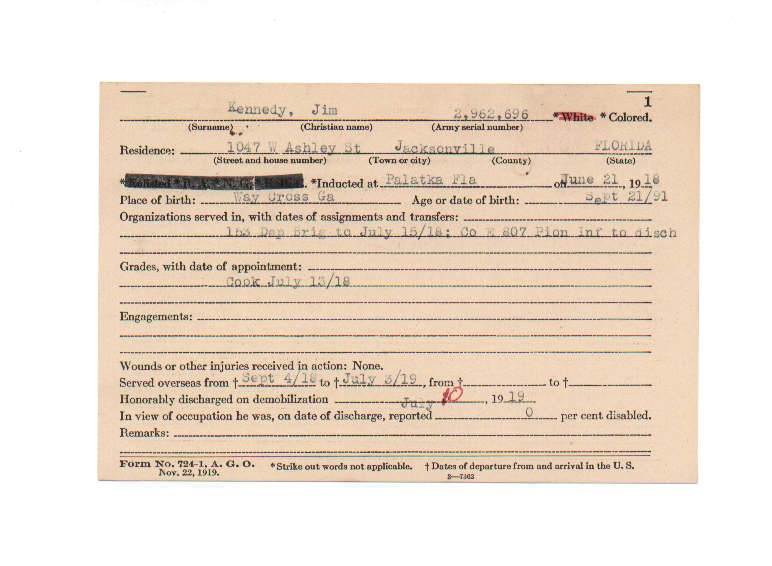 1
Kennedy, Jim 2,962,696 *White *Colored.
(Surname) (Christian name) (Army serial number)
Residence: 1047 W Ashley St Jacksonville FLORIDA
(Street and house number) (Town or city) (County) (State)
*Inducted at Palatka Fla on June 21, 1918
Place of birth: Way Cross Ga Age or date of birth: Sept 21/91
Organizations served in, with dates of assignments and transfers:
153 Dep Brig to July 15/18; Co E 807 Pion Inf to disch
Grades, with date of appointment:
Cook July 13/18
Engagements:
Wounds or other injuries received in action: None.
Served overseas from † Sept 4/18 to † July 3/19, from † to †
Honorably discharged on demobilization July 10, 1919
In view of occupation he was, on date of discharge, reported 0 per cent disabled.
Remarks:
Form No. 724-1, A. G. O. *Strike out words not applicable. † Dates of departure from and arrival in the U. S.
Nov. 22, 1919. 3—7362